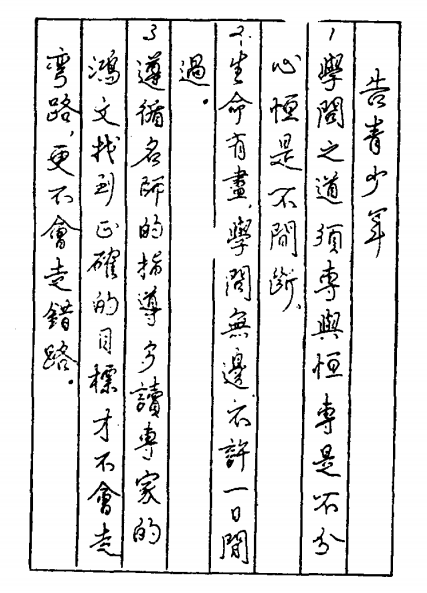 告青少年
1學問之道須專與恒專是不分
心恒是不間斷、
2.生命有盡,學問無邊,不許一日閒
過。
3遵循名師的指導多讀專家的
鴻文找到正確的目標才不會走
彎路,更不會走錯路。